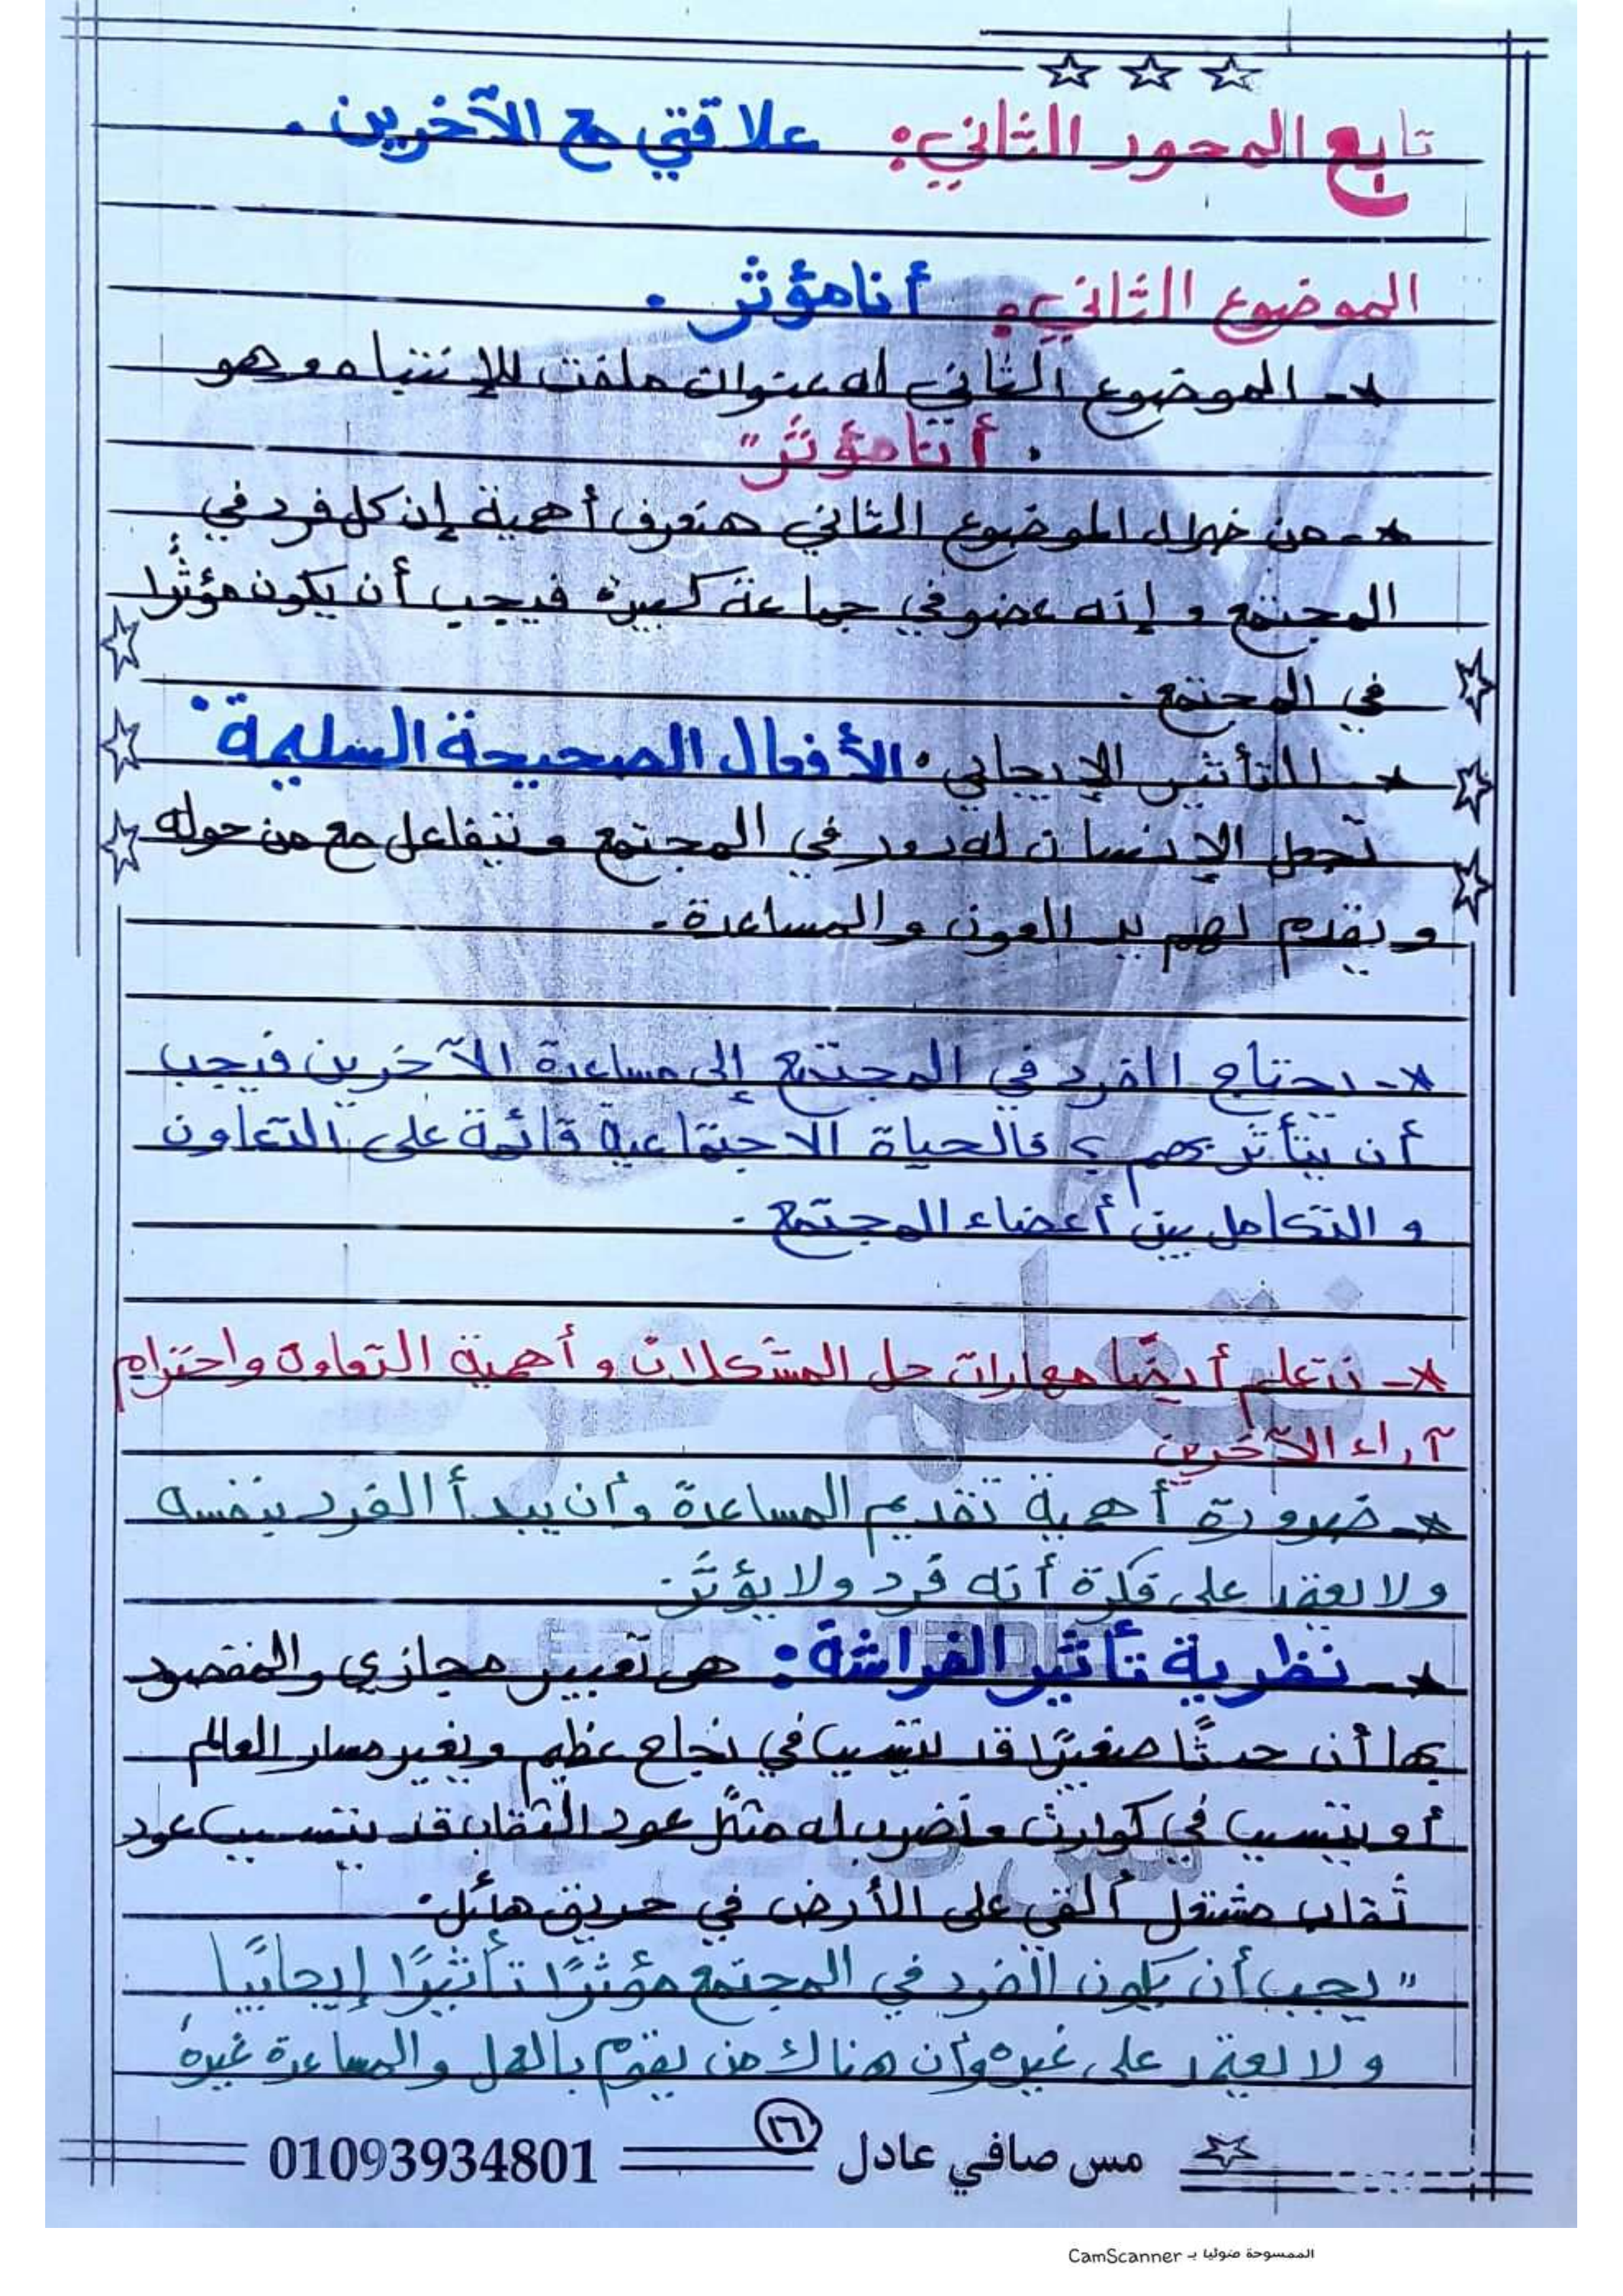 تابع المحور الثاني: علاقتي مع الآخرين.
الموضوع الثاني: أنا مؤثر.
*- الموضوع الثاني له عنوان ملفت للإنتباه وهو
"أنا مؤثر"
*- من خلال الموضوع الثاني هنعرف أهمية إن كل فرد في
المجتمع وإنه عضو في جماعة كبيرة فيجب أن يكون مؤثرًا
في المجتمع.
* التأثير الإيجابي: الأفعال الصحيحة السليمة
تجعل الإنسان له دور في المجتمع ويتفاعل مع من حوله
ويقدم لهم يد العون والمساعدة.
*- يحتاج الفرد في المجتمع إلى مساعدة الآخرين فيجب
أن يتأثر بهم؛ فالحياة الاجتماعية قائمة على التعاون
والتكامل بين أعضاء المجتمع.
*- نتعلم أيضًا مهارات حل المشكلات وأهمية التعاون واحترام
آراء الآخرين
*- ضرورة أهمية تقديم المساعدة وأن يبدأ الفرد بنفسه
ولا يعتمد على فكرة أنه فرد ولا يؤثر.
*- نظرية تأثير الفراشة: هي تعبير مجازي والمقصود
بها أن حدثًا صغيرًا قد يتسبب في نجاح عظيم ويغير مسار العالم
أو يتسبب في كوارث ونضرب له مثلًا عود الثقاب قد يتسبب عود
ثقاب مشتعل ألقي على الأرض في حريق هائل.
"يجب أن يكون الفرد في المجتمع مؤثرًا تأثيرًا إيجابيًا
ولا يعتمد على غيره وأن هناك من يقوم بالعمل والمساعدة غيره
مس صافي عادل ١٦ 01093934801
الممسوحة ضوئيا بـ CamScanner